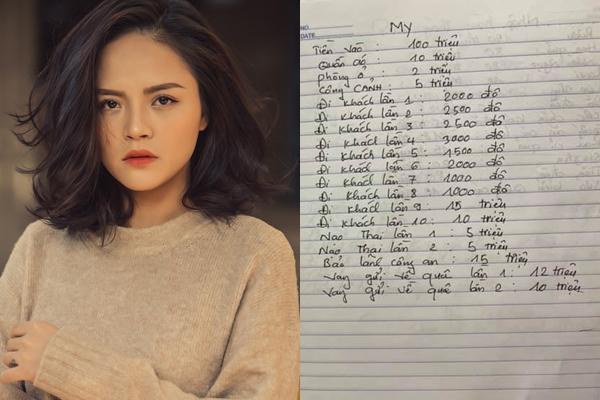 NO.
DATE
My
Tiền vào : 100 triệu
Quần áo : 10 triệu
Phòng ở : 2 triệu
Công CẢNH : 5 triệu
Đi khách lần 1 : 2000 đô
Đi khách lần 2 : 2500 đô
Đi khách lần 3 : 2500 đô
Đi khách lần 4 : 3000 đô
Đi khách lần 5 : 1500 đô
Đi khách lần 6 : 2000 đô
Đi khách lần 7 : 1000 đô
Đi khách lần 8 : 1000 đô
Đi khách lần 9 : 15 triệu
Đi khách lần 10 : 10 triệu
Nạo Thai lần 1 : 5 triệu
Nạo Thai lần 2 : 5 triệu
Bảo lãnh công an : 15 triệu
Vay gửi về quê lần 1 : 12 triệu
Vay gửi về quê lần 2 : 10 triệu